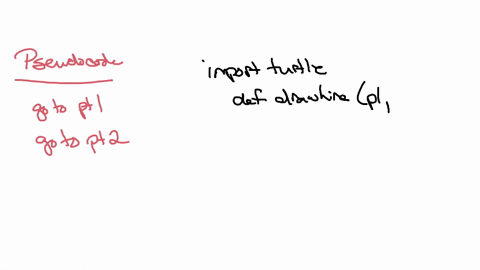 Pseudocode
go to pt1
go to pt2
import turtle
def drawline (p1,